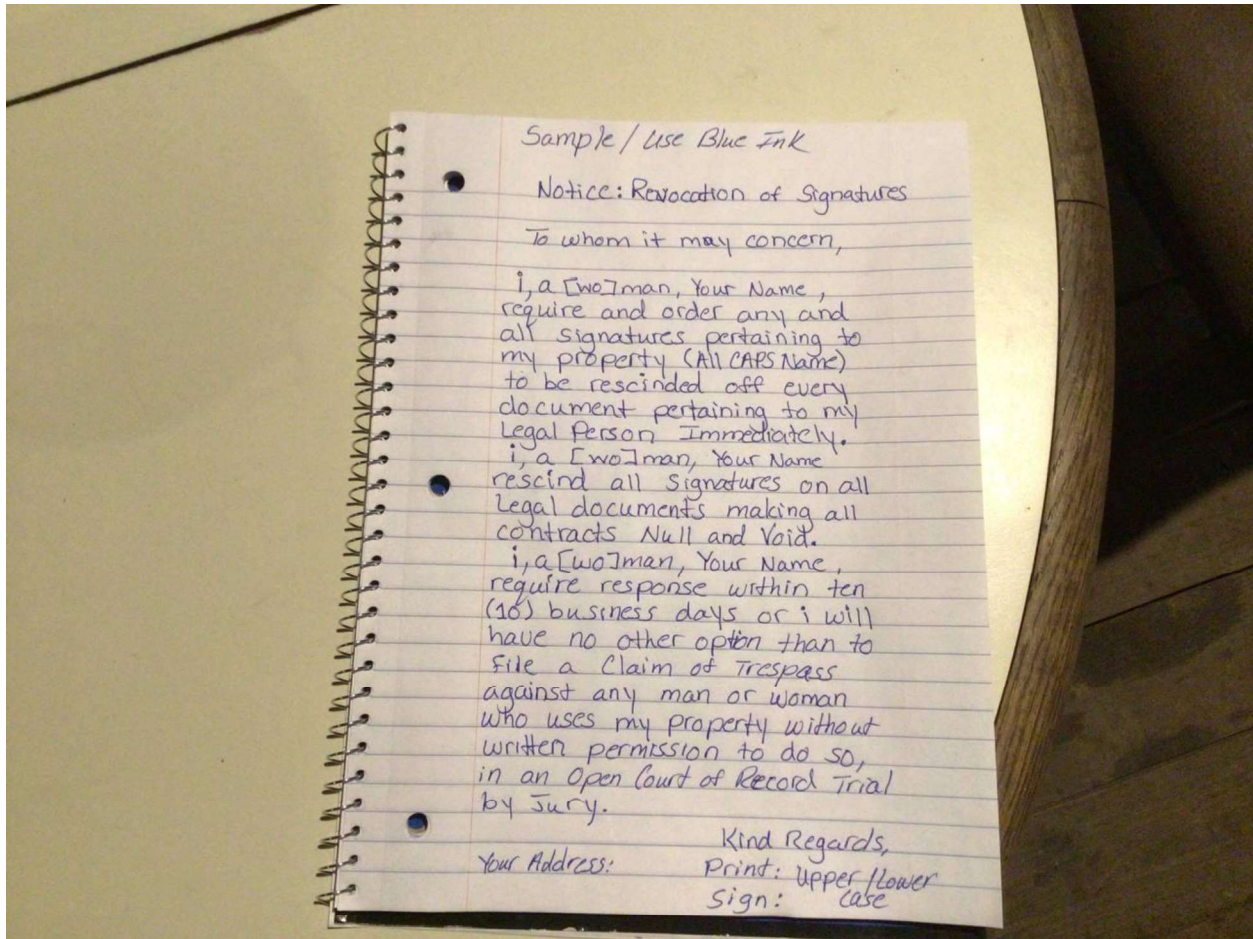 Sample / Use Blue Ink
Notice: Revocation of Signatures
To whom it may concern,
i, a [wo]man, Your Name,
require and order any and
all signatures pertaining to
my property (All CAPS Name)
to be rescinded off every
document pertaining to my
Legal Person Immediately.
i, a [wo]man, Your Name
rescind all Signatures on all
Legal documents making all
contracts Null and Void.
i, a [wo]man, Your Name,
require response within ten
(10) business days or i will
have no other option than to
File a Claim of Trespass
against any man or woman
who uses my property without
written permission to do so,
in an Open Court of Record Trial
by Jury.
Kind Regards,
Your Address: Print: Upper/Lower
Sign: Case